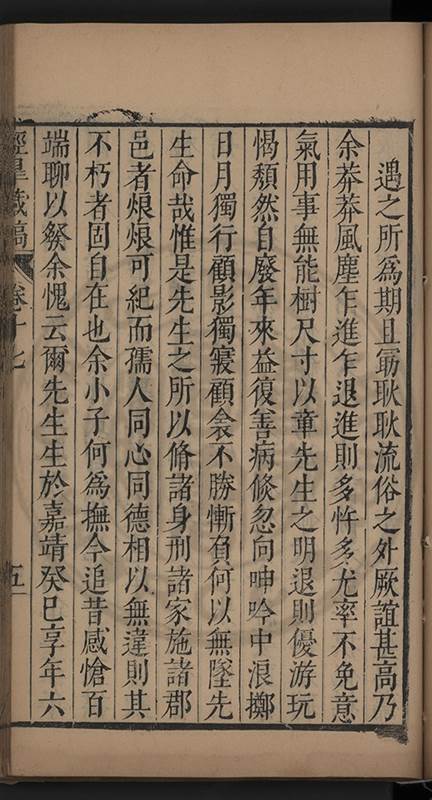 遇之所為期且勗耿耿流俗之外厥誼甚高乃
余莽莽風塵乍進乍退進則多忤多尤率不免意
氣用事無能樹尺寸以章先生之明退則優游玩
愒頹然自廢年來益復善病倐忽向呻吟中浪擲
日月獨行顧影獨寢顧衾不勝慚負何以無墜先
生命哉惟是先生之所以脩諸身刑諸家施諸郡
邑者烺烺可紀而孺人同心同德相以無違則其
不朽者固自在也余小子何為撫今追昔感愴百
端聊以發余愧云爾先生生於嘉靖癸巳享年六
涇臯藏稿 卷十七 五